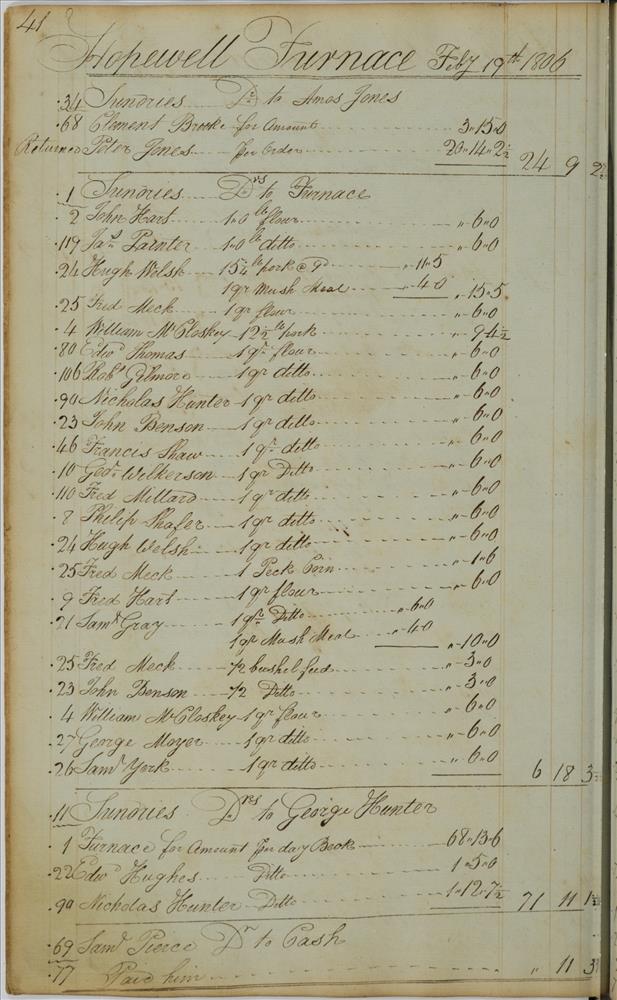 41
Hopewell Furnace Feby 19th 1806
34 Sundries Dr to Amos Jones
68 Clement Brooke for Amount 3"15"0
Returned Peter Jones Per Order 20"14"2½ 24 9 2½
1 Sundries Drs to Furnace
2 John Hart 1"0 lb flour "6"0
119 Jas Painter 1"0 lb ditto "6"0
24 Hugh Welsh 15¼ lb pork @ 9 "11"5
1 qr Mush Meal "4"0 "15"5
25 Fred Meck 1 qr flour "6"0
4 William McCloskey 12½ lb pork "9"4½
80 Edwd Thomas 1 qr flour "6"0
106 Robt Gilmore 1 qr ditto "6"0
90 Nicholas Hunter 1 qr ditto "6"0
23 John Benson 1 qr ditto "6"0
46 Francis Shaw 1 qr ditto "6"0
10 Geo. Wilkerson 1 qr Ditto "6"0
110 Fred Millard 1 qr ditto "6"0
8 Philip Shafer 1 qr ditto "6"0
24 Hugh Welsh 1 qr ditto "6"0
25 Fred Meck 1 Peck Corn "1"6
9 Fred Hart 1 qr flour "6"0
21 Saml Gray 1 qr Ditto "6"0
1 qr Mush Meal "4"0 "10"0
25 Fred Meck ½ bushel feed "3"0
23 John Benson ½ Ditto "3"0
4 William McCloskey 1 qr flour "6"0
27 George Moyer 1 qr ditto "6"0
26 Saml York 1 qr ditto "6"0 6 18 3½
11 Sundries Drs to George Hunter
1 Furnace for Amount Per day Book 68"13"6
22 Edwd Hughes Ditto 1"5"0
90 Nicholas Hunter Ditto 1"12"7½ 71 11 1½
69 Saml Pierce Dr to Cash
77 Paid him " 11 3